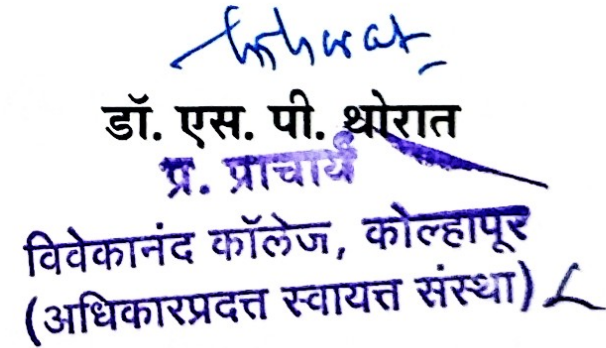 डॉ. एस. पी. थोरात
प्र. प्राचार्य
विवेकानंद कॉलेज, कोल्हापूर
(अधिकारप्रदत्त स्वायत्त संस्था)